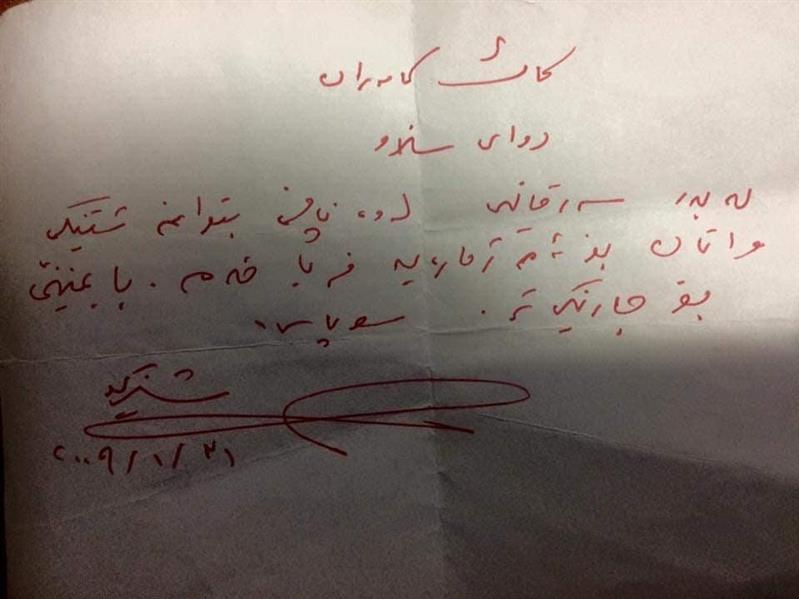 کاک کامەران
دوای سلاو
لە بەر سەرقاڵی لەوە ناچێ بتوانم شتێک
واتان بۆ ئەم ژمارەیە فریا خەم. با بمێنێ
بۆ جارێکی تر. سوپاس.
شێرکۆ
٢٠٠٩/١/٢١